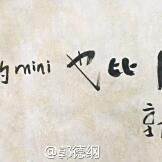 的mini也比
@郭德纲